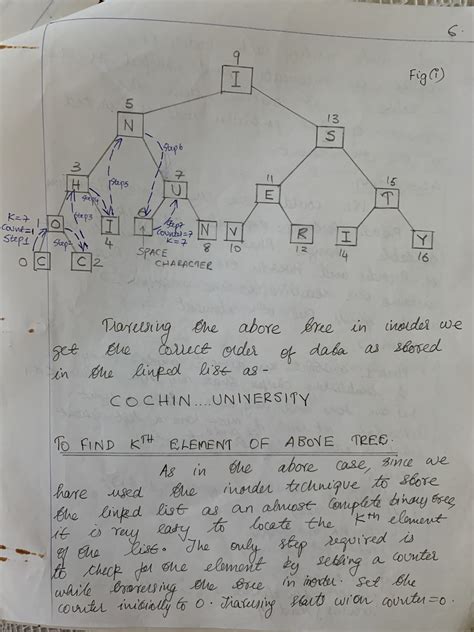 6.
Fig(i)
9
I
5
N
13
S
3
H
7
U
11
E
15
T
Step6
Step5
Step4
Step3
K=7
count=1
Step1
1
O
I
4
Step7
count=7
K=7
N
8
V
10
R
12
I
14
Y
16
0
C
Step2
C
2
SPACE
CHARACTER
Traversing the above tree in inorder we
get the correct order of data as stored
in the linked list as -
COCHIN....UNIVERSITY
TO FIND KTH ELEMENT OF ABOVE TREE.
As in the above case, since we
have used the inorder technique to store
the linked list as an almost complete binary tree,
it is very easy to locate the Kth element
of the list. The only step required is
to check for the element by setting a counter
while traversing the tree in inorder. Set the
counter initially to 0. Traversing starts with counter=0.